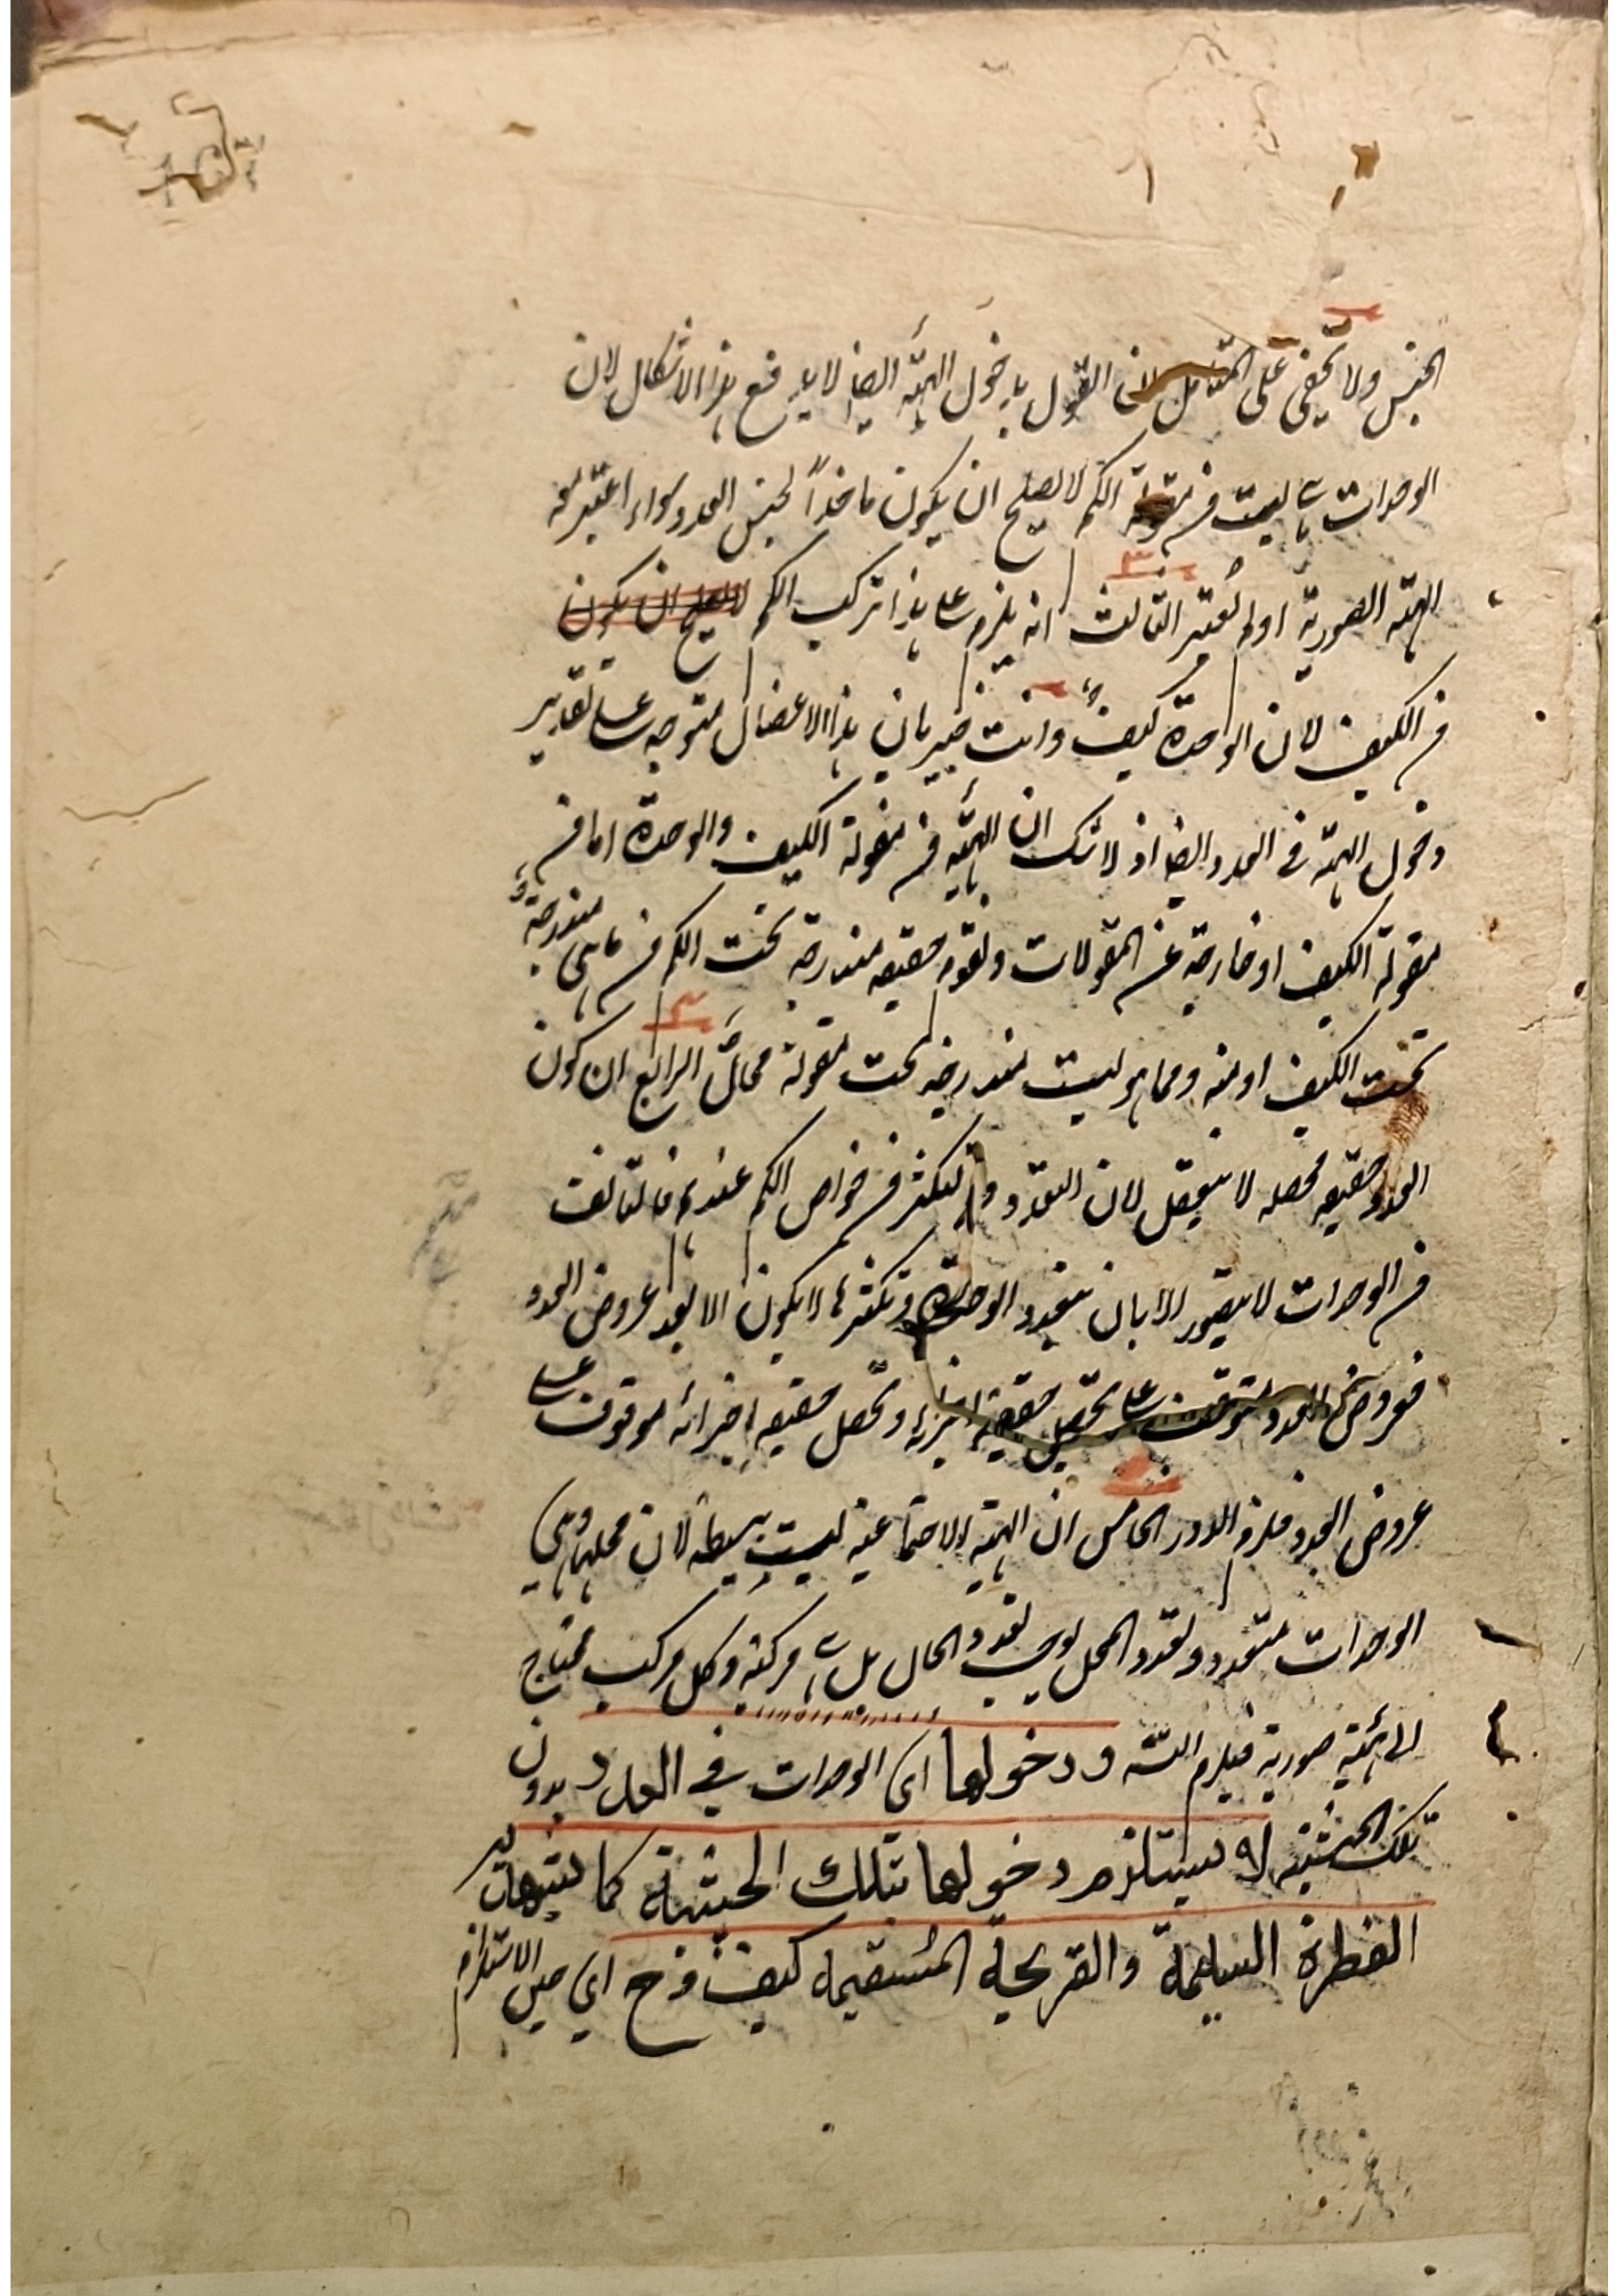 الجنس ولا يخفى على المتامل ان القول بدخول الهيئة ايضا لا يدفع هذا الاشكال لان
الوحدات التي ليست من مقولة الكم لا يصلح ان يكون ماخذاً لجنس العدد سواء اعتبر معه
الهيئة الصورية او لم تعتبر الثالث انه يلزم على هذا تركب الكم
من الكيف لان الوحدة كيف وانت خبير بان هذا الاعضال متوجه على تقدير
دخول الهيئة في العدد ايضا اذ لا شك ان الهيئة من مقولة الكيف والوحدة اما من
مقولة الكيف او خارجة عن المقولات وتقوم حقيقه مندرجة تحت الكم من ما هي مندرجة
تحت الكيف او منه ومما هو ليست مندرجه تحت مقولة محالٌ الرابع ان كون
العدد حقيقه محصله لا يتعقل لان التعدد والتكثر من خواص الكم عندهم فالتالف
من الوحدات لا يتصور الا بان يتعدد الوحدة وتكثرها لا يكون الا بعد عروض العدد
فعروض العدد يتوقف على تحصل حقيقة اجزائه وتحصل حقيقه اجزائه موقوف على
عروض العدد فلزم الدور الخامس ان الهيئة الاجتماعية ليست بسيطة لان محلها وهي
الوحدات متعدد وتعدد المحل يوجب تعدد الحال بل هي مركبة وكل مركب محتاج
الى هيئة صورية فيلزم التسلسل ودخولها اى الوحدات في العدد بدون
تلك الحيثية لا يستلزم دخولها بتلك الحيثية كما يشهد به
الفطرة السليمة والقريحة المستقيمة كيف وح اي حين الاستلزام